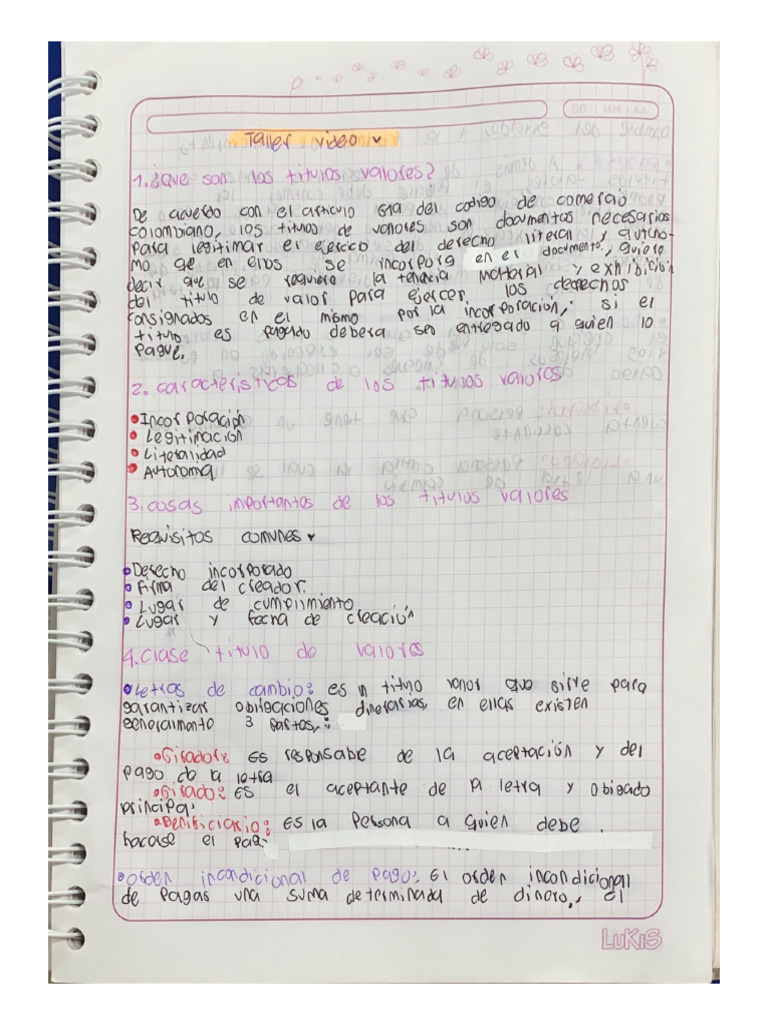 DD | MM | AA
Taller video
1.¿Que son los titulos valores?
De acuerdo con el articulo 619 del codigo de comercio
colombiano, los titulos de valores son documentos necesarios
para legitimar el ejercico del derecho literal y autono-
mo que en ellos se incorpora en el documento, quiere
decir que se requiere la tenencia material y exhibición
del titulo de valor para ejercer los derechos
consignados en el mismo por la incorporación, si el
titulo es pagado debera ser entregado a quien lo
pague.
2. caracteristicas de los titulos valores
• Incorporación
• Legitimación
• Literalidad
• Autonoma
3. cosas importantes de los titulos valores
Requisitos comunes
• Derecho incorporado
• Firma del creador.
• Lugar de cumplimiento
• Lugar y fecha de creación
4. Clase titulo de valores
• Letras de cambio: es un titulo valor que sirve para
garantizar obligaciones dinerarias, en ellas existen
generalmente 3 partes,:
• Girador: Es responsabe de la aceptación y del
pago de la letra
• Girado: Es el aceptante de la letra y obligado
principal
• Benificiario: Es la persona a quien debe
hacerse el pago
• Orden incondicional de pago: El orden incondicional
de pagar una suma determinada de dinero, el
LUKIS